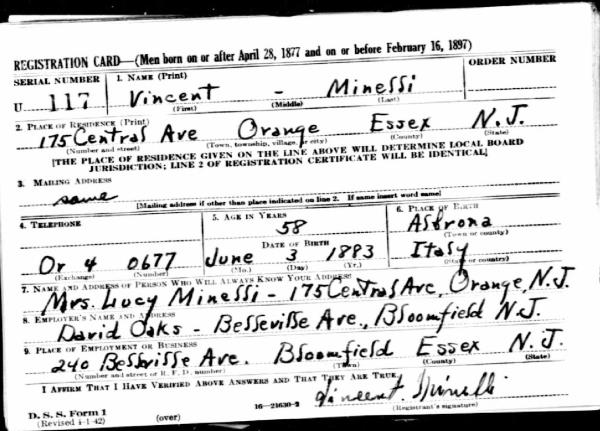 REGISTRATION CARD—(Men born on or after April 28, 1877 and on or before February 16, 1897)
SERIAL NUMBER 1. NAME (Print) ORDER NUMBER
U 117 Vincent - Minelli
(First) (Middle) (Last)
2. PLACE OF RESIDENCE (Print)
175 Central Ave Orange Essex N.J.
(Number and street) (Town, township, village, or city) (County) (State)
[THE PLACE OF RESIDENCE GIVEN ON THE LINE ABOVE WILL DETERMINE LOCAL BOARD
JURISDICTION; LINE 2 OF REGISTRATION CERTIFICATE WILL BE IDENTICAL]
3. MAILING ADDRESS
same
[Mailing address if other than place indicated on line 2. If same insert word same]
4. TELEPHONE 5. AGE IN YEARS 6. PLACE OF BIRTH
58
(Town or county)
DATE OF BIRTH
Or 4 0677 June 3 1883 Italy
(Exchange) (Number) (Mo.) (Day) (Yr.) (State or country)
7. NAME AND ADDRESS OF PERSON WHO WILL ALWAYS KNOW YOUR ADDRESS
Mrs. Lucy Minelli - 175 Central Ave, Orange, N.J.
8. EMPLOYER'S NAME AND ADDRESS
David Oaks - Belleville Ave., Bloomfield N.J.
9. PLACE OF EMPLOYMENT OR BUSINESS
240 Belleville Ave. Bloomfield Essex N.J.
(Number and street or R. F. D. number) (Town) (County) (State)
I AFFIRM THAT I HAVE VERIFIED ABOVE ANSWERS AND THAT THEY ARE TRUE.
Vincent Minelli
D. S. S. Form 1 16—21630-2 (Registrant's signature)
(Revised 4-1-42) (over)